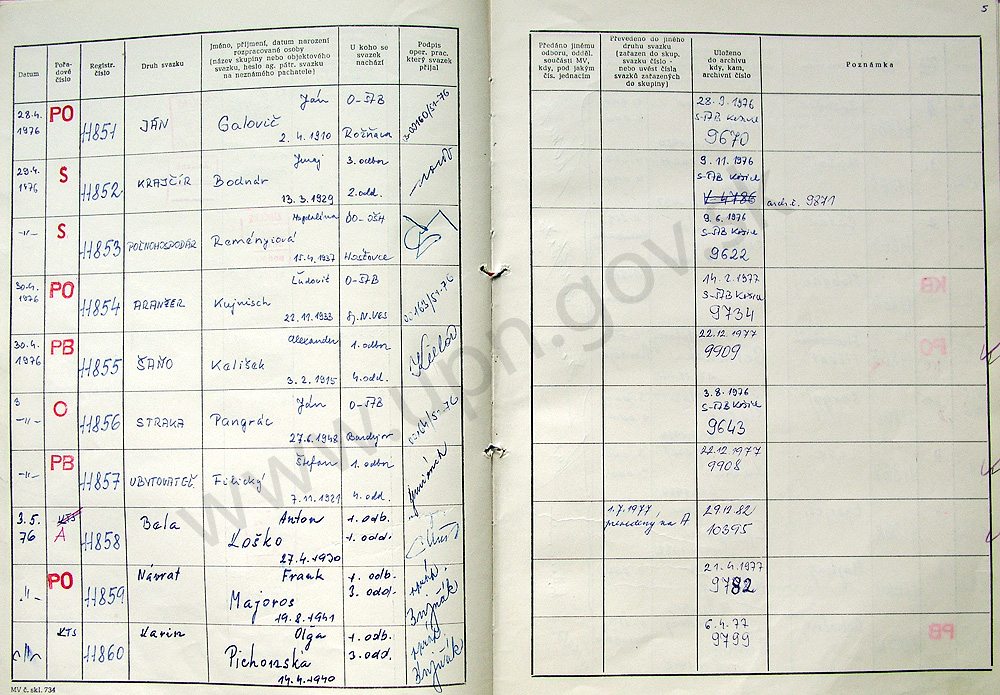 5
Datum
Pořadové číslo
Registr. číslo
Druh svazku
Jméno, příjmení, datum narození rozpracované osoby (název skupiny nebo objektového svazku, heslo ag. pátr. svazku na neznámého pachatele)
U koho se svazek nachází
Podpis oper. prac. který svazek přijal
Předáno jinému odboru, odděl. součásti MV, kdy, pod jakým čís. jednacím
Převedeno do jiného druhu svazku (zařazen do skup. svazku číslo - nebo uvést čísla svazků zařazených do skupiny)
Uloženo do archivu kdy, kam, archivní číslo
Poznámka
28.4. 1976 PO 11851 JÁN Ján Galovič 2.4.1910 O-ŠTB Rožňava 28.9.1976 S-ŠTB Košice 9670
29.4. 1976 S 11852 KRAJČÍR Juraj Bodnár 13.3.1929 3. odbor 2. odd. 9.11.1976 S-ŠTB Košice V 4786 arch. č. 9871
-"- S 11853 POĽNOHOSPODÁR Magdaléna Reményiová 15.4.1937 Hosťovce 9.6.1976 S-ŠTB Košice 9622
30.4. 1976 PO 11854 ARANŽÉR Ľudovít Kujnisch 22.11.1933 O-ŠTB Sp.N.VES 14.2.1977 S-ŠTB Košice 9734
30.4. 1976 PB 11855 ŠAŇO Alexander Kališek 3.2.1915 1. odbor 4. odd. 22.12.1977 9909
-"- O 11856 STRAKA Ján Pangrác 27.6.1948 O-ŠTB Bardejov 3.8.1976 S-ŠTB Košice 9643
-"- PB 11857 UBYTOVATEĽ Štefan Filický 7.11.1921 1. odbor 4. odd. 22.12.1977 9908
3.5. 76 KTS A 11858 Bela Anton Loško 27.4.1930 1. odb. 1. odd. 1.7.1977 prevedený na A 29.12.82 10395
-"- PO 11859 Návrat Frank Majoros 19.8.1941 1. odb. 3. odd. 21.4.1977 9782
-"- KTS 11860 Karin Olga Pichonská 14.4.1940 1. odb. 3. odd. 6.4.77 9799
MV č. skl. 734
www.upn.gov.sk